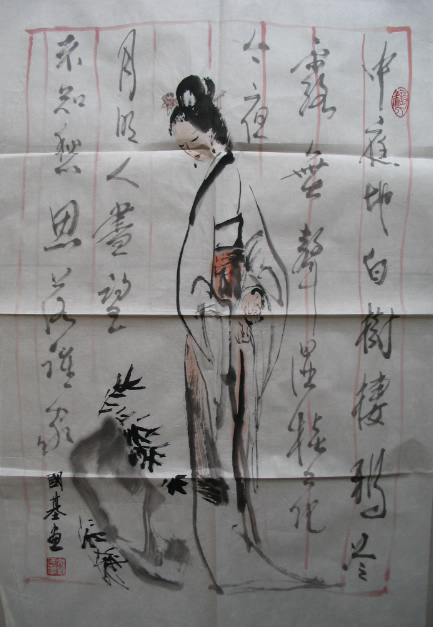 中庭地白樹棲鴉冷
露無聲濕桂花
今夜
月明人盡望
不知愁思落誰家
國基畫